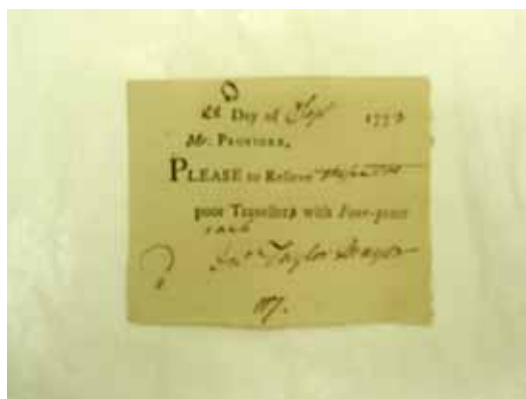 Day of Sepr 177
Mr. PROVIDER,
PLEASE to Relieve
poor Travellers with Four-pence
each
Jno. Taylor Mayor